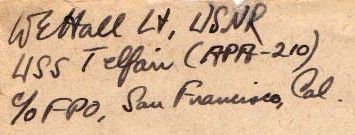 WE Hall Lt, USNR
USS Telfair (APA-210)
c/o FPO, San Francisco, Cal.